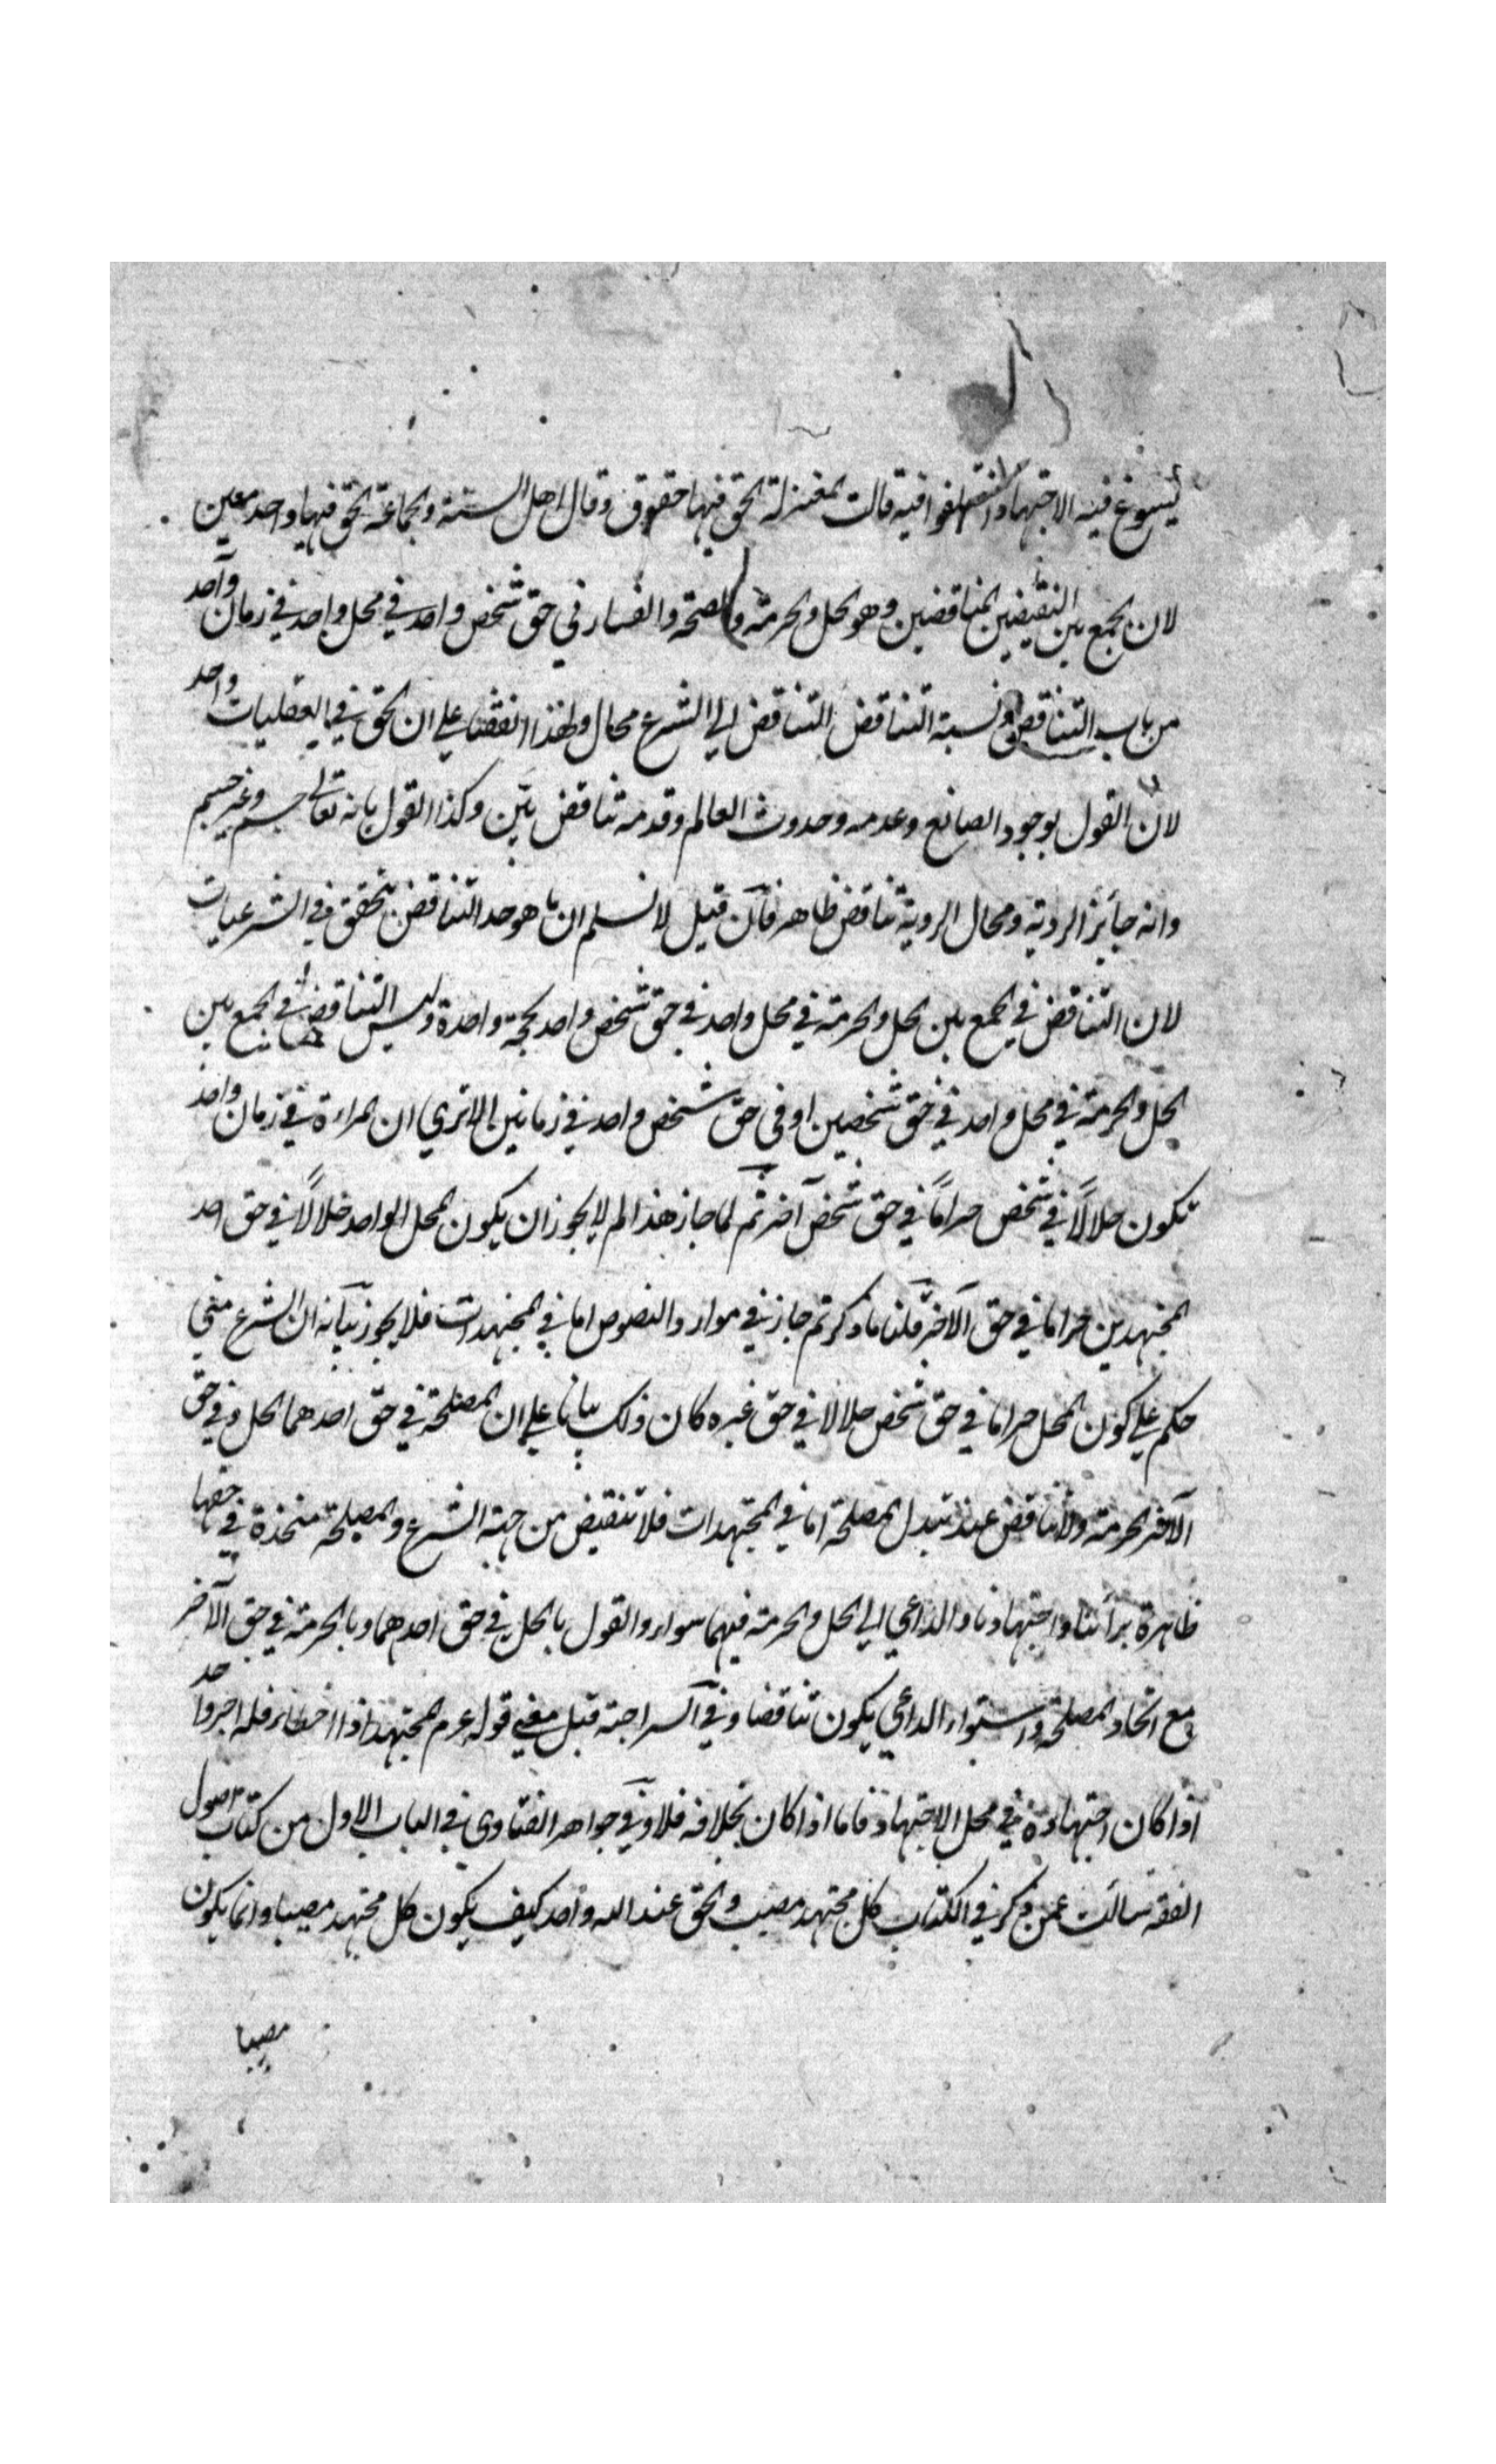 يسوغ فيه الاجتهاد اختلفوا فيه قالت المعتزلة الحق فيها حقوق وقال اهل السنة والجماعة الحق فيها واحد معين
لان الجمع بين النقيضين المتناقضين وهو الحل والحرمة والصحة والفساد في حق شخص واحد في محل واحد في زمان واحد
من باب التناقض ونسبة التناقض المتناقض الي الشرع محال ولهذا اتفقنا علي ان الحق في العقليات واحد
لان القول بوجود الصانع وعدمه وحدوث العالم وقدمه تناقض بيّن وكذا القول بانه تعالى جسم وغير جسم
وانه جائز الروية ومحال الروية تناقض ظاهر فان قيل لا نسلم ان ما هو حد التناقض يتحقق في الشرعيات
لان التناقض في الجمع بين الحل والحرمة في محل واحد في حق شخص واحد بجهة واحدة وليس التناقض في الجمع بين
الحل والحرمة في محل واحد في حق شخصين او في حق شخص واحد في زمانين الا تري ان المراءة في زمان واحد
تكون حلالًا في شخص حرامًا في حق شخص آخر ثم لما جاز هذا لم لا يجوز ان يكون المحل الواحد حلالًا في حق احد
المجتهدين حراما في حق الآخر قلنا ما ذكرتم جاز في موارد والنصوص اما في المجتهدات فلا يجوز بيانه ان الشرع متي
حكم علي كون المحل حراما في حق شخص حلالا في حق غيره كان ذلك بيانا علي ان المصلحة في حق احدهما الحل وفي حق
الآخر الحرمة ولا تناقض عند تبدل المصلحة اما في المجتهدات فلا تنقيض من جهة الشرع والمصلحة متحدة في حقهما
ظاهرة برأينا واجتهادنا والداعي الي الحل والحرمة فيهما سواء والقول بالحل في حق احدهما وبالحرمة في حق الآخر
مع اتحاد المصلحة واستواء الداعي يكون تناقضا وفي السراجية قيل معني قوله عم المجتهد اذا اخطاء فله اجر واحد
اذا كان اجتهاده في محل الاجتهاد فاما اذا كان بخلافه فلا وفي جواهر الفتاوى في الباب الاول من كتاب اصول
الفقه سالت عمن ذكر في الكتاب كل مجتهد مصيب والحق عند الله واحد كيف يكون كل مجتهد مصيبا وانما يكون
مصيبا